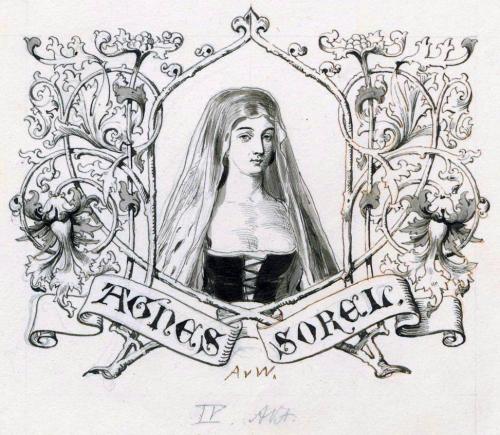 AGNES SOREL.
AvW.
IV. Akt.